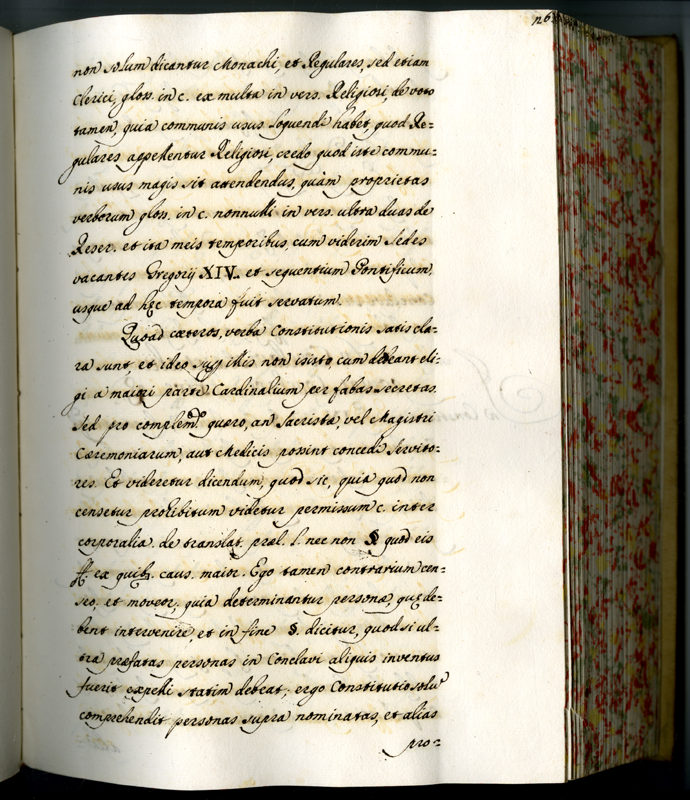 126
non solum dicantur Monachi, et Regulares, sed etiam
Clerici, glos. in c. ex multa in vers. Religiosi, de voto
tamen, quia communis usus loquendi habet, quod Re=
gulares appellentur Religiosi, credo quod iste commu=
nis usus magis sit attendendus, quàm proprietas
verborum glos. in c. nonnulli in vers. ultra duas de
Rescr. et ita meis temporibus, cum viderim Sedes
vacantes Gregorij XIV. et sequentium Pontificum,
usque ad hęc tempora fuit servatum.
Quoad cæteros, verba Constitutionis satis cla=
ra sunt, et ideo sup illis non insisto, cum debeant eli=
gi a maiori parte Cardinalium per fabas secretas.
Sed pro complem.to quæro, an Sacristæ, vel Magistri
Cæremoniarum, aut Medicis possint concedi servito=
res. Et videretur dicendum, quod sic, quia quod non
censetur prohibitum videtur permissum c. inter
corporalia de translat. præl. l. nec non § quod eis
ff. ex quib. caus. maior. Ego tamen contrarium cen=
seo, et moveor, quia determinantur personæ, quę de=
bent intervenire, et in fine §. dicitur, quod si ul=
tra præfatas personas in Conclavi aliquis inventus
fuerit expelli statim debeat; ergo Constitutio solũ
comprehendit personas supra nominatas, et alias
pro=